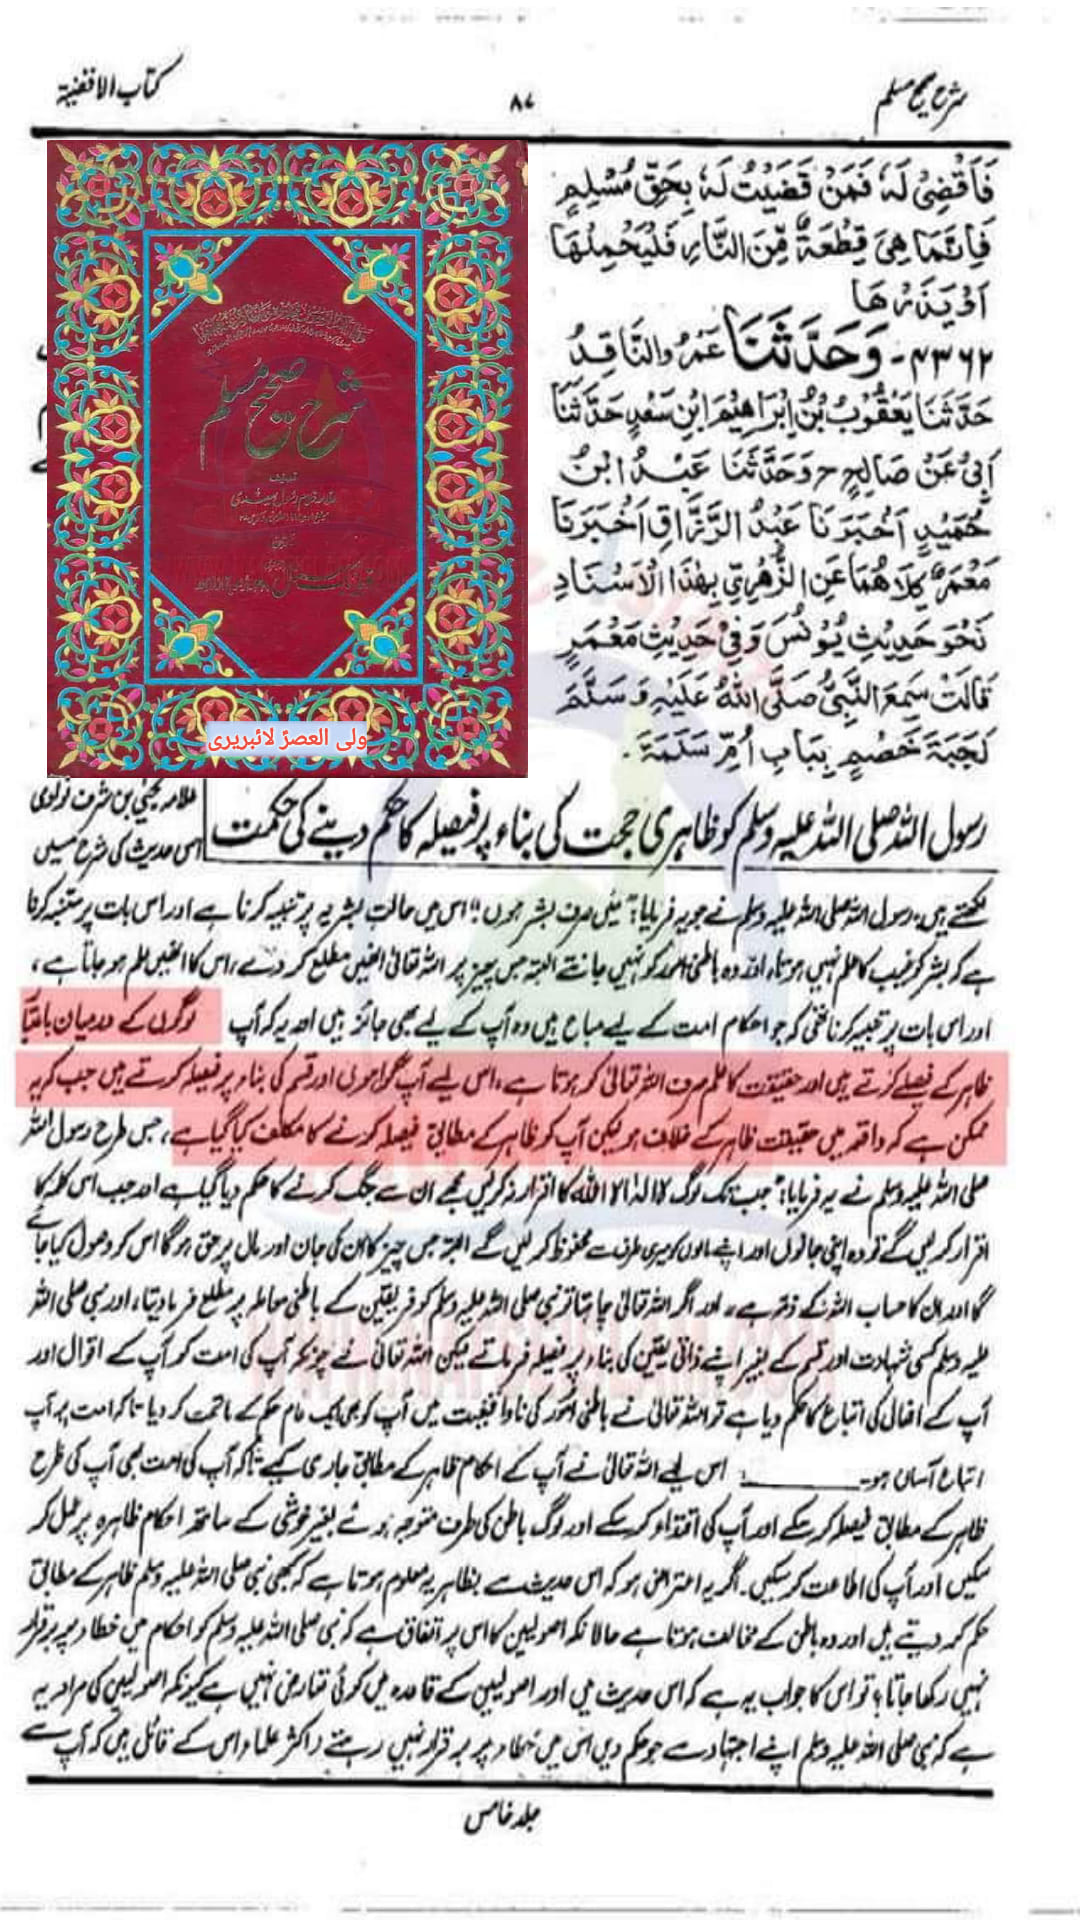 شرح صحیح مسلم
۸۷
کتاب الاقضیۃ
فَاَقْضِیْ لَہٗ فَمَنْ قَضَیْتُ لَہٗ بِحَقِّ مُسْلِمٍ
فَاِنَّمَا ھِیَ قِطْعَۃٌ مِّنَ النَّارِ فَلْیَحْمِلْھَا
اَوْ یَذَرْھَا
۴۳۶۲- وَحَدَّثَنَا عَمْرُو النَّاقِدُ
حَدَّثَنَا یَعْقُوْبُ بْنُ اِبْرَاھِیْمَ ابْنِ سَعْدٍ حَدَّثَنَا
اَبِیْ عَنْ صَالِحٍ ح وَحَدَّثَنَا عَبْدُ ابْنُ
حُمَیْدٍ اَخْبَرَنَا عَبْدُ الرَّزَّاقِ اَخْبَرَنَا
مَعْمَرٌ کِلَاھُمَا عَنِ الزُّھْرِیِّ بِھٰذَا الْاِسْنَادِ
نَحْوَ حَدِیْثِ یُوْنُسَ وَفِیْ حَدِیْثِ مَعْمَرٍ
قَالَتْ سَمِعَ النَّبِیُّ صَلَّی اللہُ عَلَیْہِ وَسَلَّمَ
لَجَبَۃَ خَصْمٍ بِبَابِ اُمِّ سَلَمَۃَ ۔
شرح صحیح مسلم
تصنیف
علامہ غلام رسول سعیدی
ولی العصرؑ لائبریری
رسول اللہ صلی اللہ علیہ وسلم کو ظاہری حجت کی بناء پر فیصلہ کا حکم دینے کی حکمت
علامہ یحییٰ بن شرف نووی
اس حدیث کی شرح میں
لکھتے ہیں: رسول اللہ صلی اللہ علیہ وسلم نے جو یہ فرمایا: "میں صرف بشر ہوں" اس میں حالتِ بشریہ پر تنبیہ کرنا ہے اور اس بات پر متنبہ کرنا
ہے کہ بشر کو غیب کا علم نہیں ہوتا، اور وہ باطنی امور کو نہیں جانتے البتہ جس چیز پر اللہ تعالیٰ انھیں مطلع کر دے، اس کا انھیں علم ہو جاتا ہے،
اور اس بات پر تنبیہ کرنا تھی کہ جو احکام امت کے لیے مباح ہیں وہ آپ کے لیے بھی جائز ہیں اور یہ کہ آپ لوگوں کے درمیان باعتبار
ظاہر کے فیصلے کرتے ہیں اور حقیقت کا علم صرف اللہ تعالیٰ کو ہوتا ہے، اس لیے آپ گواہوں اور قسم کی بناء پر فیصلہ کرتے ہیں جب کہ یہ
ممکن ہے کہ واقعہ میں حقیقت ظاہر کے خلاف ہو لیکن آپ کو ظاہر کے مطابق فیصلہ کرنے کا مکلف کیا گیا ہے، جس طرح رسول اللہ
صلی اللہ علیہ وسلم نے یہ فرمایا: "جب تک لوگ لا الہ الا اللہ کا اقرار نہ کریں مجھے ان سے جنگ کرنے کا حکم دیا گیا ہے اور جب اس کلمہ کا
اقرار کر لیں گے تو وہ اپنی جانوں اور اپنے مالوں کو میری طرف سے محفوظ کر لیں گے البتہ جس چیز کا ان کی جان اور مال پر حق ہو گا اس کو وصول کیا جائے
گا اور ان کا حساب اللہ کے ذمہ ہے، اور اگر اللہ تعالیٰ چاہتا تو نبی صلی اللہ علیہ وسلم کو فریقین کے باطنی معاملہ پر مطلع فرما دیتا، اور نبی صلی اللہ
علیہ وسلم کسی شہادت اور قسم کے بغیر اپنے ذاتی یقین کی بناء پر فیصلہ فرماتے لیکن اللہ تعالیٰ نے چونکہ آپ کی امت کو آپ کے اقوال اور
آپ کے افعال کی اتباع کا حکم دیا ہے تو اللہ تعالیٰ نے باطنی امور کی ناواقفیت میں آپ کو بھی ایک عام حکم کے ماتحت کر دیا تاکہ امت پر آپ
اتباع آسان ہو۔ اس لیے اللہ تعالیٰ نے آپ کے احکام ظاہر کے مطابق جاری کیے تاکہ آپ کی امت بھی آپ کی طرح
ظاہر کے مطابق فیصلہ کر سکے اور آپ کی اقتداء کر سکے اور لوگ باطن کی طرف متوجہ ہوئے بغیر خوشی کے ساتھ احکام ظاہرہ پر عمل کر
سکیں اور آپ کی اطاعت کر سکیں۔ اگر یہ اعتراض ہو کہ اس حدیث سے بظاہر یہ معلوم ہوتا ہے کہ کبھی نبی صلی اللہ علیہ وسلم ظاہر کے مطابق
حکم کر دیتے ہیں اور وہ باطن کے مخالف ہوتا ہے حالانکہ اصولیین کا اس پر اتفاق ہے کہ نبی صلی اللہ علیہ وسلم کو احکام میں خطاء پر برقرار
نہیں رکھا جاتا؟ تو اس کا جواب یہ ہے کہ اس حدیث میں اور اصولیین کے قاعدہ میں کوئی تعارض نہیں ہے کیونکہ اصولیین کی مراد یہ
ہے کہ نبی صلی اللہ علیہ وسلم اپنے اجتہاد سے جو حکم دیں اس میں خطاء پر برقرار نہیں رہتے (اکثر علماء اس کے قائل ہیں کہ آپ سے
جلد خامس